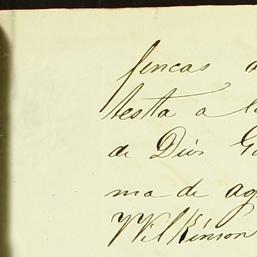 fincas
testta a
de Dios
ma de ag
Wilkinson